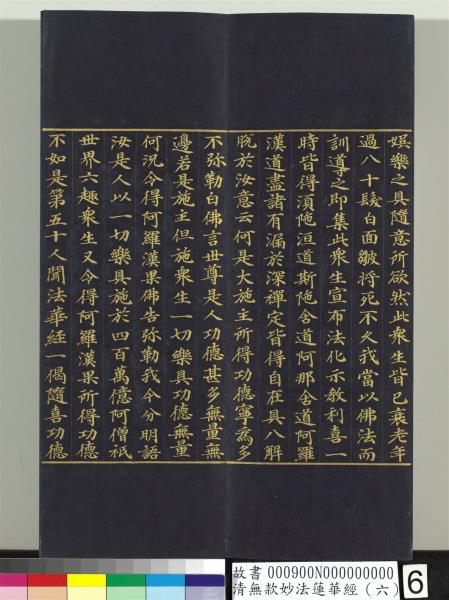 娛樂之具隨意所欲然此衆生皆已衰老年
過八十髮白面皺將死不久我當以佛法而
訓導之即集此衆生宣布法化示教利喜一
時皆得須陁洹道斯陁含道阿那含道阿羅
漢道盡諸有漏於深禪定皆得自在具八解
脫於汝意云何是大施主所得功德寧爲多
不弥勒白佛言世尊是人功德甚多無量無
邊若是施主但施衆生一切樂具功德無量
何況令得阿羅漢果佛告弥勒我今分明語
汝是人以一切樂具施於四百萬億阿僧祇
世界六趣衆生又令得阿羅漢果所得功德
不如是第五十人聞法華經一偈隨喜功德
故書 000900N000000000
清無款妙法蓮華經(六)
6